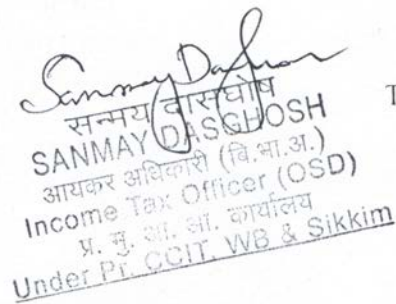 Sanmay Dasghosh
सन्मय दासघोष
SANMAY DASGHOSH
आयकर अधिकारी (वि.भा.अ.)
Income Tax Officer (OSD)
प्र. मु. आ. आ. कार्यालय
Under Pr. CCIT, WB & Sikkim
T